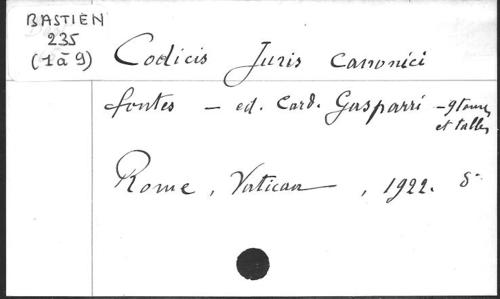 BASTIEN
235
(1 à 9)
Codicis Juris Canonici
fontes – ed. Card. Gasparri – 9 tomes
et tables
Rome, Vatican, 1922. 8°